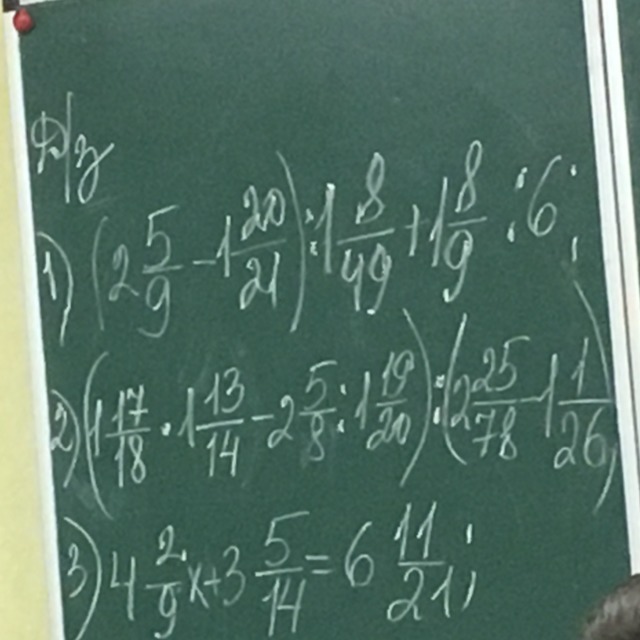 Д/з
1) (2 5/9 - 1 20/21) : 1 8/49 + 1 8/9 : 6;
2) (1 17/18 · 1 13/14 - 2 5/8 : 1 19/20) : (2 25/78 - 1 1/26)
3) 4 2/9 x + 3 5/14 = 6 11/21;